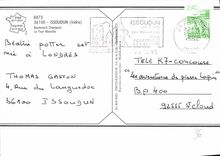 6873
36100 - ISSOUDUN (Indre)
Boulevard Champion
La Tour Blanche
ISSOUDUN
2,40
Beatrix potter est
né à LONDRES
THOMAS GASTON
4, Rue du Languedoc
36100 ISSOUDUN
TELE K7-CONCOURS
"Les aventures de pierre lapin"
BP 400
92555 St Cloud